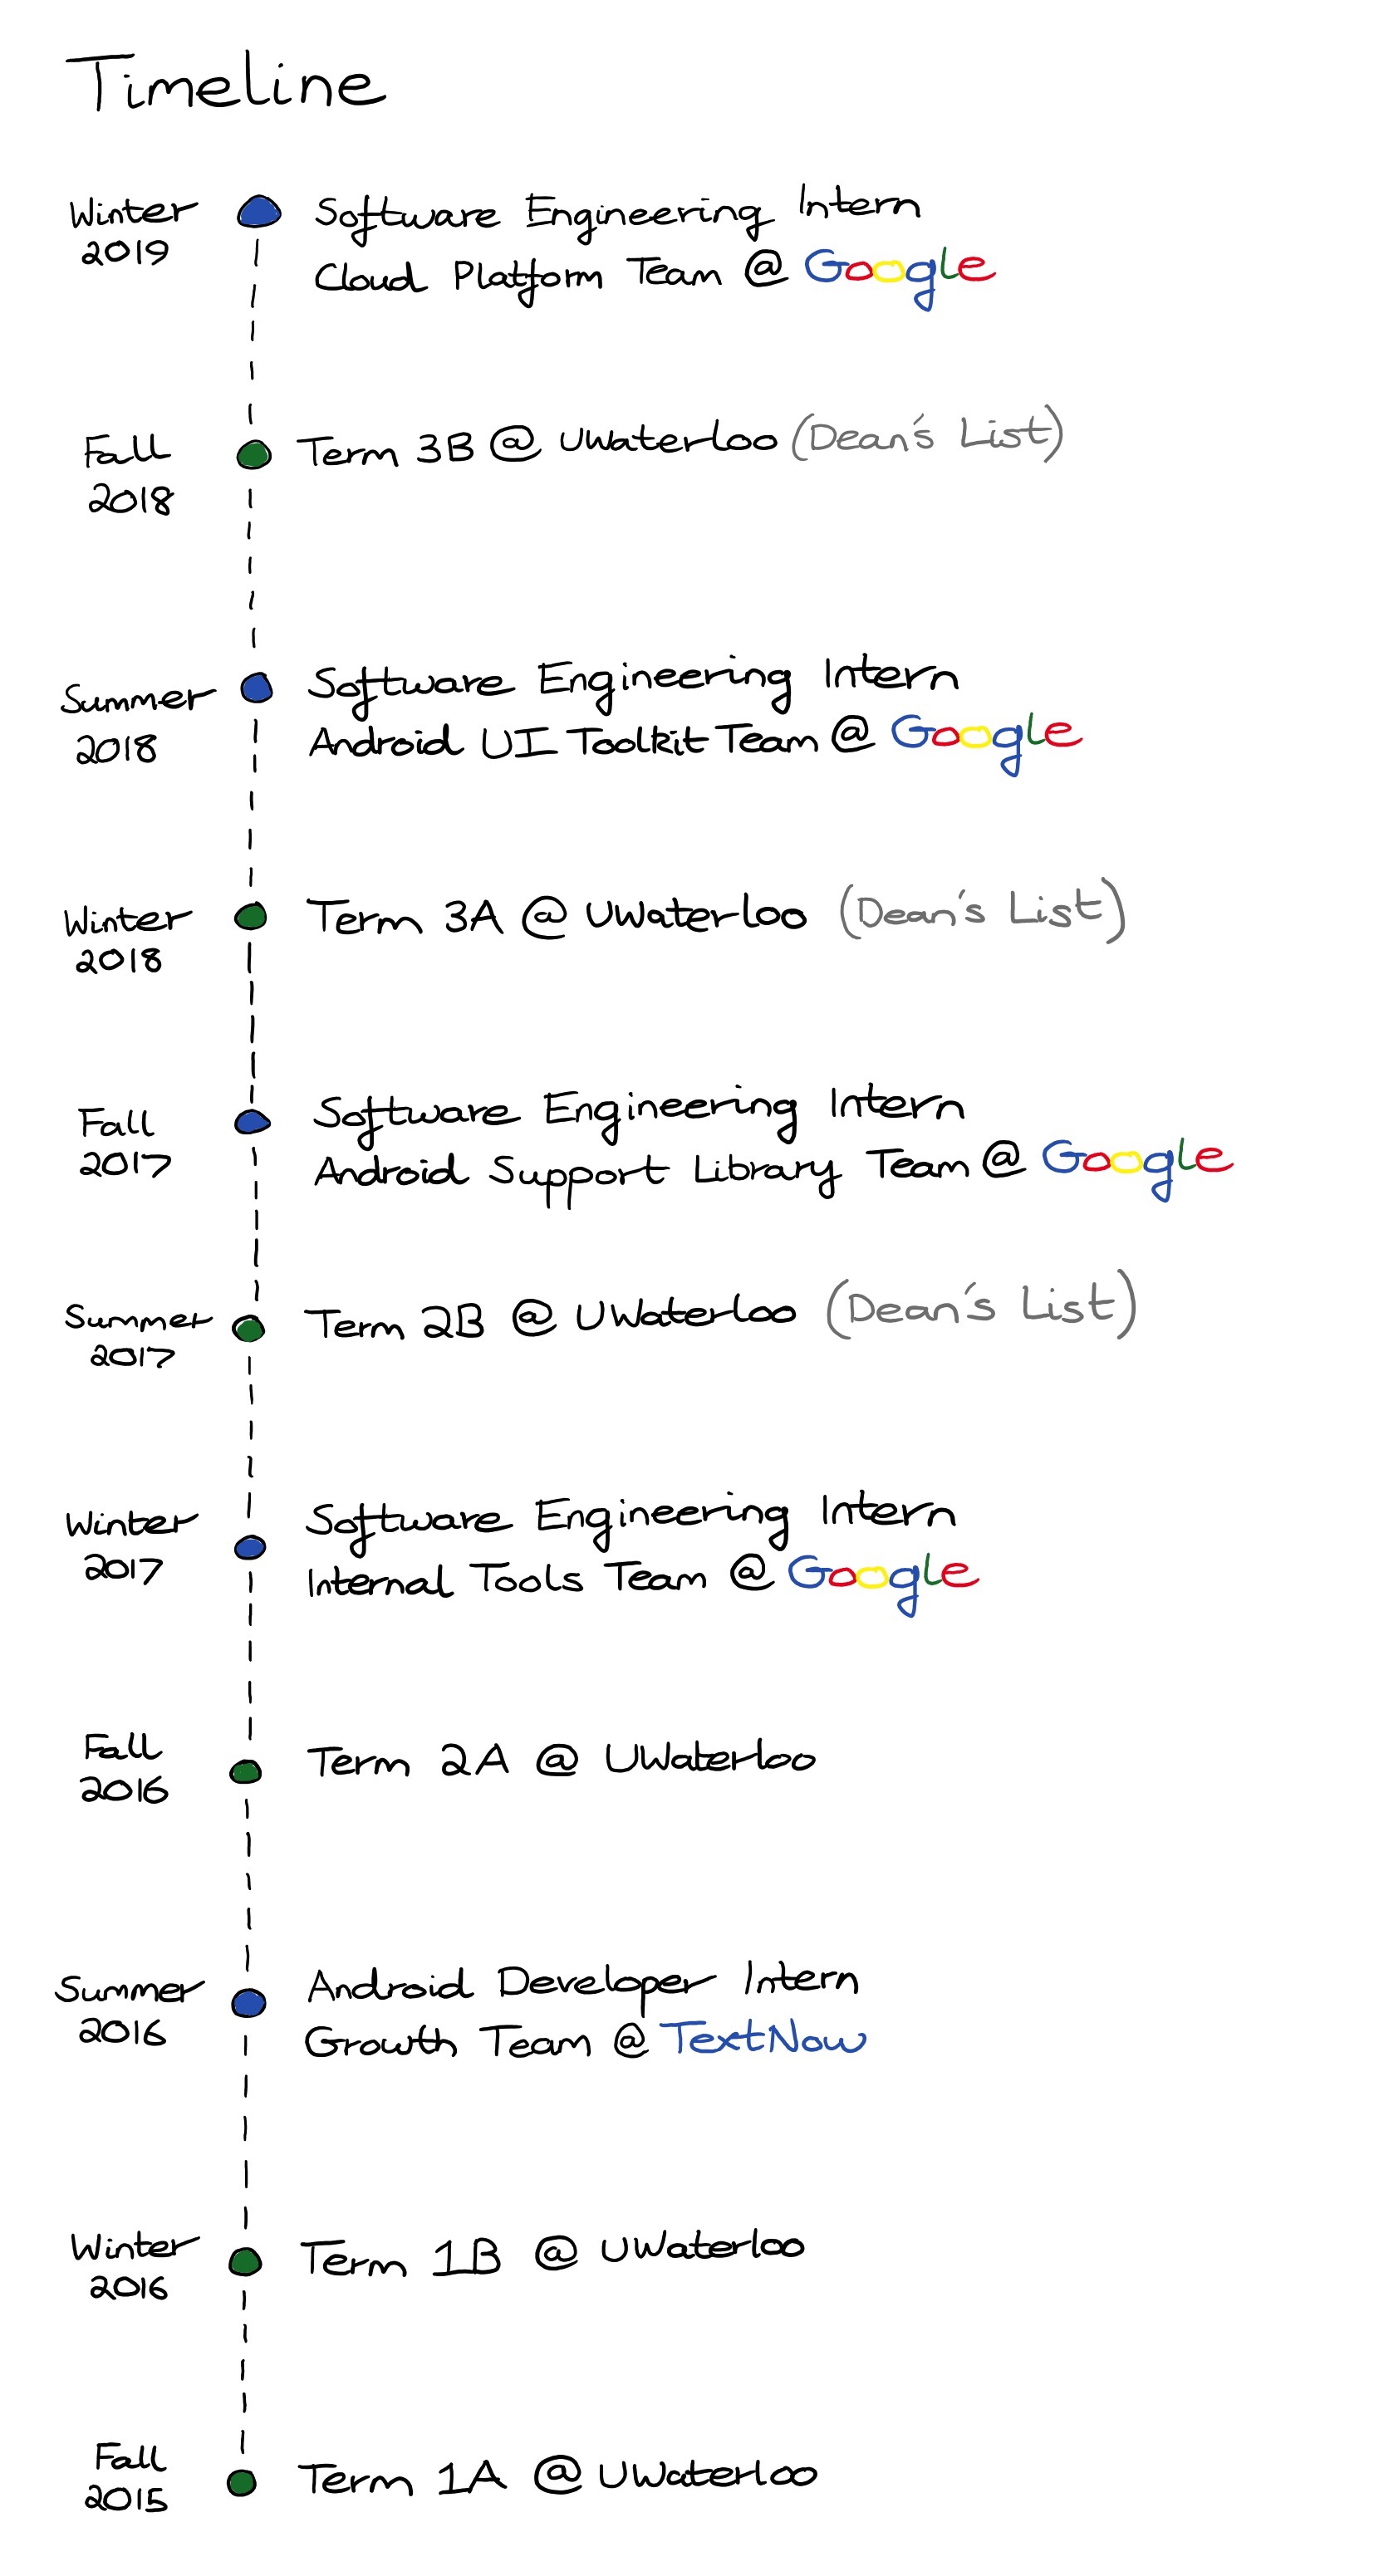 Timeline
Winter
2019
Software Engineering Intern
Cloud Platform Team @ Google
Fall
2018
Term 3B @ UWaterloo (Dean's List)
Summer
2018
Software Engineering Intern
Android UI Toolkit Team @ Google
Winter
2018
Term 3A @ UWaterloo (Dean's List)
Fall
2017
Software Engineering Intern
Android Support Library Team @ Google
Summer
2017
Term 2B @ UWaterloo (Dean's List)
Winter
2017
Software Engineering Intern
Internal Tools Team @ Google
Fall
2016
Term 2A @ UWaterloo
Summer
2016
Android Developer Intern
Growth Team @ TextNow
Winter
2016
Term 1B @ UWaterloo
Fall
2015
Term 1A @ UWaterloo